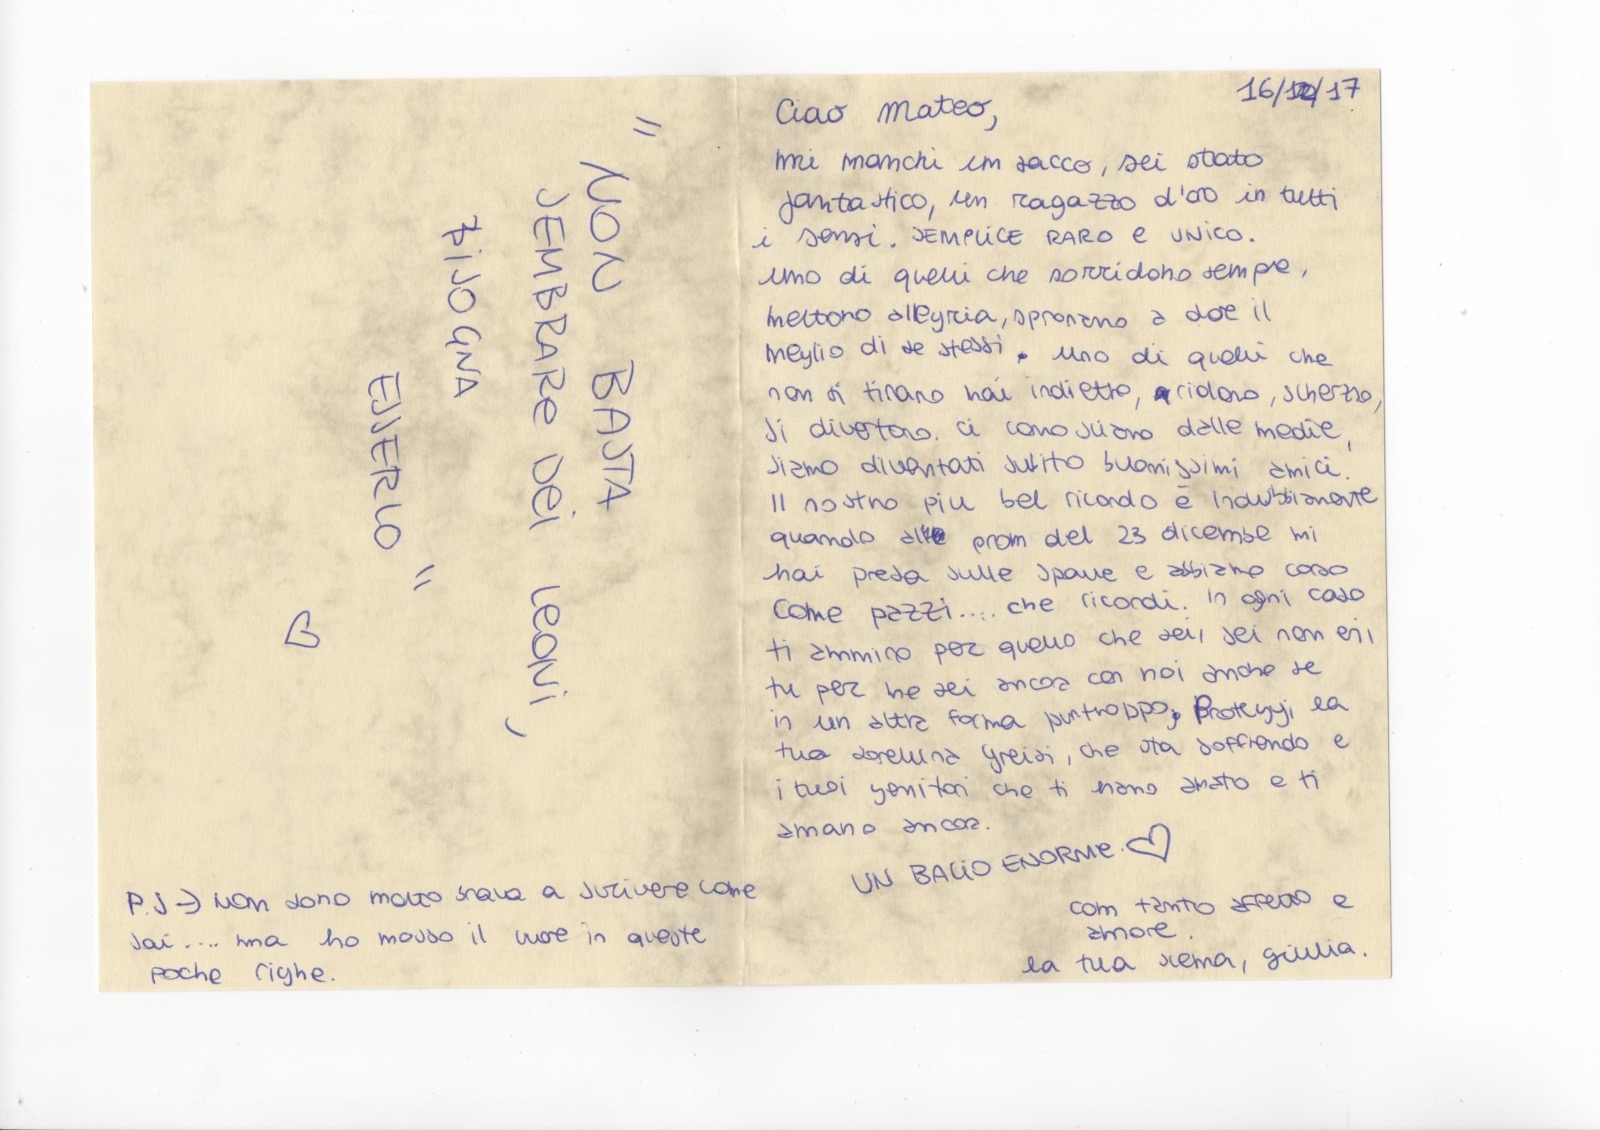 "NON BASTA
SEMBRARE DEI LEONI,
BISOGNA
ESSERLO"
P.S → NON sono molto brava a scrivere come
sai.... ma ho messo il cuore in queste
poche righe.
16/12/17
Ciao Mateo,
mi manchi un sacco, sei stato
fantastico, un ragazzo d'oro in tutti
i sensi. SEMPLICE RARO e UNICO.
uno di quelli che sorridono sempre,
mettono allegria, spronano a dare il
meglio di se stessi. uno di quelli che
non si tirano mai indietro, ridono, scherzano,
si divertono. ci conosciamo dalle medie,
siamo diventati subito buonissimi amici.
Il nostro piu bel ricordo è indubbiamente
quando alle prom del 23 dicembre mi
hai presa sulle spalle e abbiamo corso
come pazzi.... che ricordi. in ogni caso
ti ammiro per quello che sei, sei non eri,
tu per me sei ancora con noi anche se
in un altra forma purtroppo, Proteggi la
tua sorellina Greisi, che sta soffrendo e
i tuoi genitori che ti hano amato e ti
amano ancora.
UN BACIO ENORME.
con tanto affetto e
amore.
la tua scema, giulia.